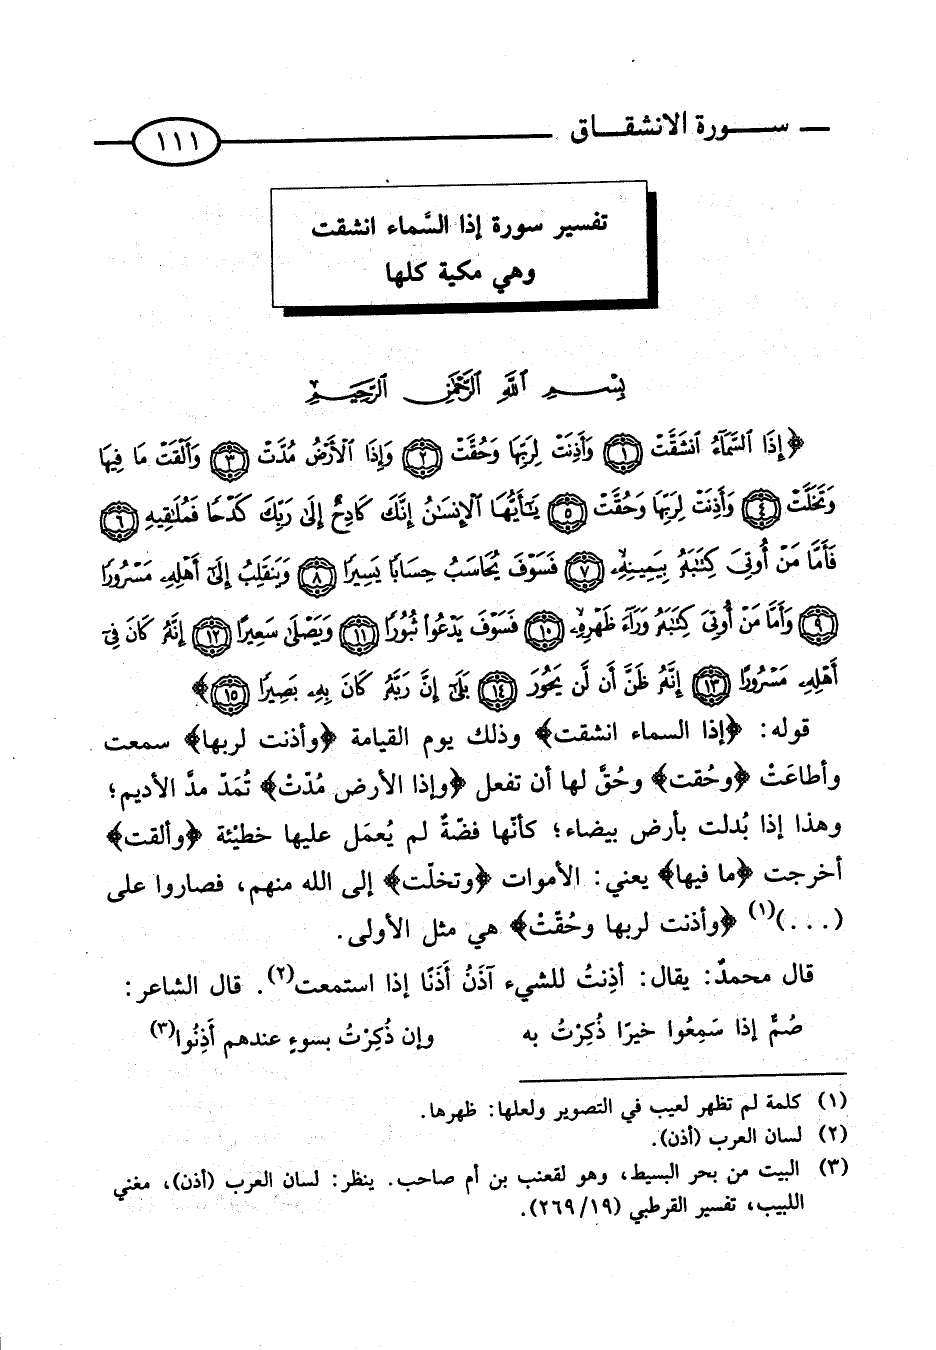 سورة الانشقاق ١١١
تفسير سورة إذا السَّماء انشقت
وهي مكية كلها
بِسْمِ ٱللَّهِ ٱلرَّحْمَٰنِ ٱلرَّحِيمِ
﴿إِذَا ٱلسَّمَآءُ ٱنشَقَّتْ ١ وَأَذِنَتْ لِرَبِّهَا وَحُقَّتْ ٢ وَإِذَا ٱلْأَرْضُ مُدَّتْ ٣ وَأَلْقَتْ مَا فِيهَا
وَتَخَلَّتْ ٤ وَأَذِنَتْ لِرَبِّهَا وَحُقَّتْ ٥ يَٰٓأَيُّهَا ٱلْإِنسَٰنُ إِنَّكَ كَادِحٌ إِلَىٰ رَبِّكَ كَدْحًا فَمُلَٰقِيهِ ٦
فَأَمَّا مَنْ أُوتِىَ كِتَٰبَهُۥ بِيَمِينِهِۦ ٧ فَسَوْفَ يُحَاسَبُ حِسَابًا يَسِيرًا ٨ وَيَنقَلِبُ إِلَىٰٓ أَهْلِهِۦ مَسْرُورًا
٩ وَأَمَّا مَنْ أُوتِىَ كِتَٰبَهُۥ وَرَآءَ ظَهْرِهِۦ ١٠ فَسَوْفَ يَدْعُوا۟ ثُبُورًا ١١ وَيَصْلَىٰ سَعِيرًا ١٢ إِنَّهُۥ كَانَ فِىٓ
أَهْلِهِۦ مَسْرُورًا ١٣ إِنَّهُۥ ظَنَّ أَن لَّن يَحُورَ ١٤ بَلَىٰٓ إِنَّ رَبَّهُۥ كَانَ بِهِۦ بَصِيرًا ١٥﴾
قوله: ﴿إذا السماء انشقت﴾ وذلك يوم القيامة ﴿وأذنت لربها﴾ سمعت
وأطاعَتْ ﴿وحُقت﴾ وحُقَّ لها أن تفعل ﴿وإذا الأرض مُدّتْ﴾ تُمَدّ مدَّ الأديم؛
وهذا إذا بُدلت بأرض بيضاء؛ كأنّها فضّةٌ لم يُعمَل عليها خطيْئة ﴿وألقت﴾
أخرجت ﴿ما فيها﴾ يعني: الأموات ﴿وتخلّت﴾ إلى الله منهم، فصاروا على
(...)(١) ﴿وأذنت لربها وحُقّتْ﴾ هي مثل الأولى.
قال محمدٌ: يقال: أذِنتُ للشيء آذَنُ أَذَنًا إذا استمعت(٢). قال الشاعر:
صُمٌّ إذا سَمِعُوا خيرًا ذُكِرْتُ به وإن ذُكِرْتُ بسوءٍ عندهم أَذِنُوا(٣)
(١) كلمة لم تظهر لعيب في التصوير ولعلها: ظهرها.
(٢) لسان العرب (أذن).
(٣) البيت من بحر البسيط، وهو لقعنب بن أم صاحب. ينظر: لسان العرب (أذن)، مغني
اللبيب، تفسير القرطبي (١٩/ ٢٦٩).